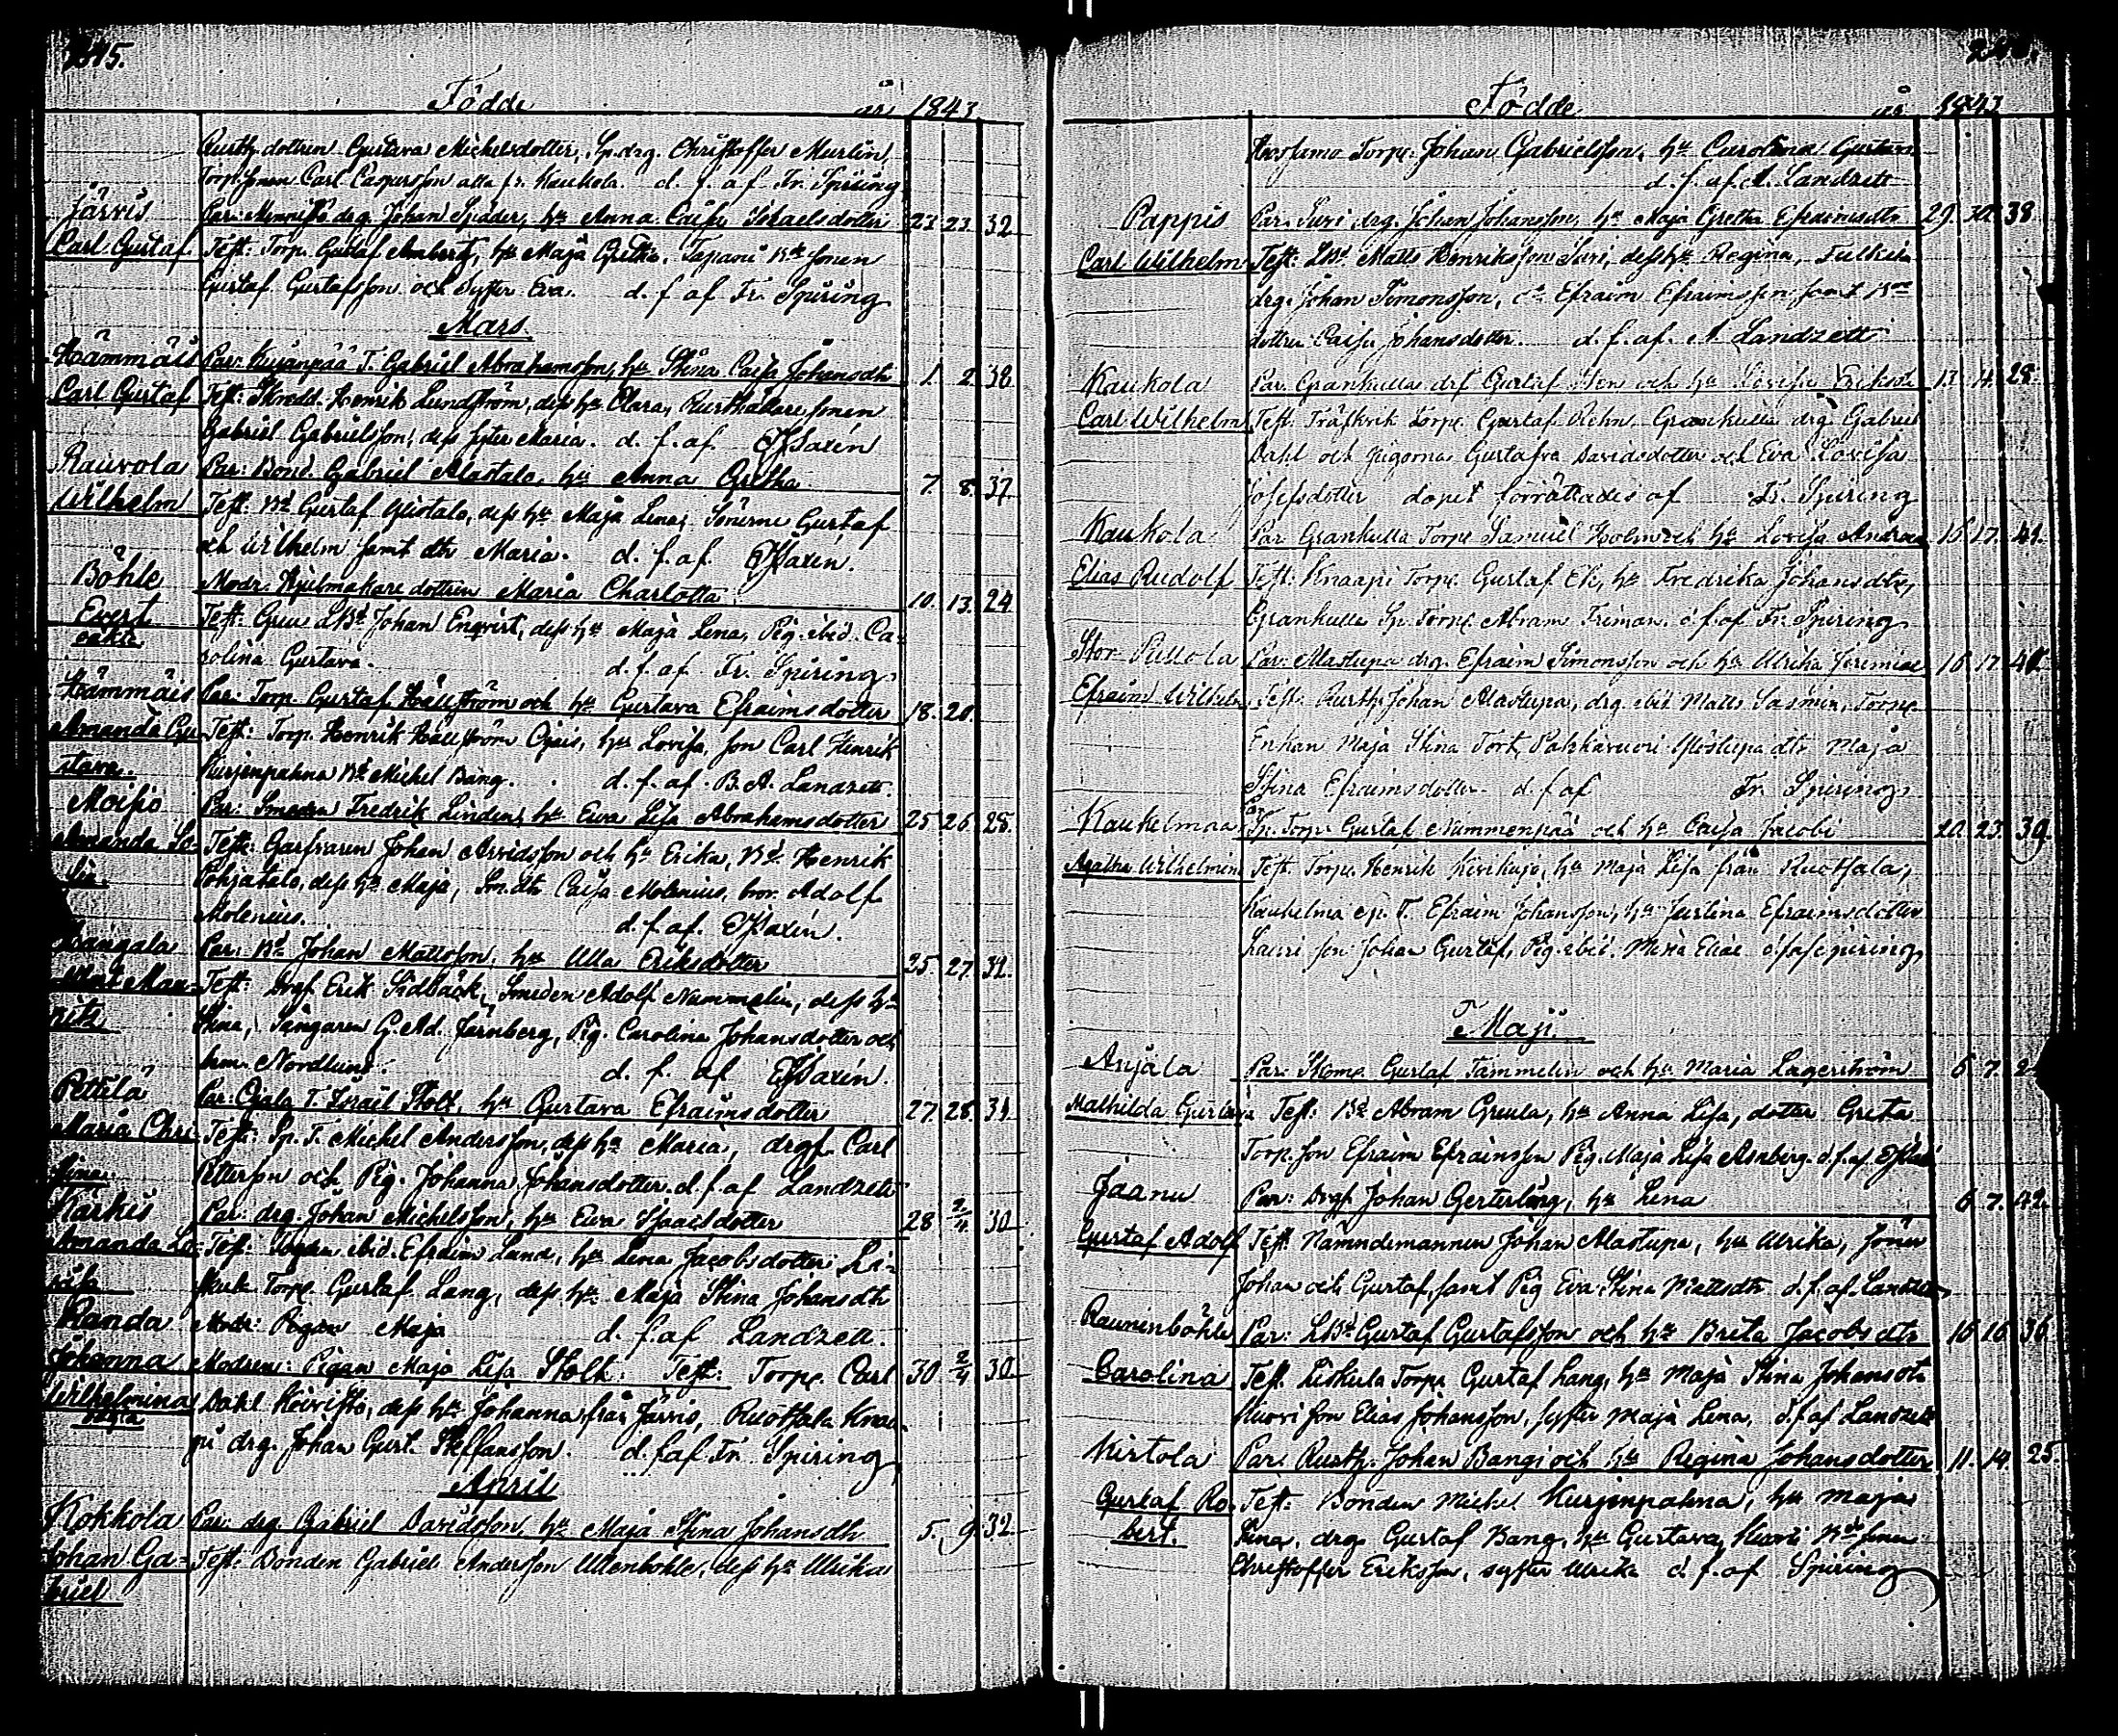 245.
Födde år 1843.
Rusth. dottren Gustava Michelsdotter, Sp. drg. Christoffer Murlin,
Torp. sonen Carl Caspersson alla fr. Kaukola. d. f. af Fr. Spiring
Järvis Par: drg. Johan hu Anna Caisa Israelsdotter 23. 23. 32
Carl Gustaf Test: Torp. Gustaf hu Maja Gretha, Tapani Bd sonen
Gustaf Gustafsson och Syster Eva. d. f. af Fr. Spiring
Mars
Hämmäis Par: Kujanpää T. Gabriel Abrahamsson, hu Stina Caisa Johansdtr 1. 2. 38
Carl Gustaf Test: Skrädd. Henrik Lundström, dess hu Clara, Rusthållare sonen
Gabriel Gabrielsson, dess syster Maria. d. f. af Saxén
Rauvola Par: Bond. Gabriel Alastalo, hu Anna Gretha 7. 8. 37
Wilhelm Test: Bd Gustaf Ylistalo, dess hu Maja Lena, Sönerne Gustaf
och Wilhelm samt dtr Maria. d. f. af Saxén.
Böhle Modr. Hjulmakare dottren Maria Charlotta 10. 13. 24
Evert Test: Greu LBd Johan Enqvist, dess hu Maja Lena, Pig. ibid. Ca-
oäkta rolina Gustava. d. f. af Fr. Spiring
Hämmäis Par: Torp. Gustaf Hällström och hu Gustava Efraimsdotter 18. 20.
Amanda Gu- Test: Torp. Henrik Hällström Ojais, hu Lovisa, son Carl Henrik
stava. Kurjenpahna Bd Michel Bång. d. f. af B. A. Landzett.
Moisio Par: Smeden Fredrik Linden, hu Ewa Lisa Abrahamsdotter 25 26 28.
Amanda So- Test: Garfvaren Johan Arvidsson och hu Erika, Bd Henrik
fia. Pohjatalo, dess hu Maja, Sm. dtr Caisa Molenius, bror Adolf
Molenius. d. f. af Saxén.
Kangala Par: Bd Johan Mattsson, hu Ulla Eriksdotter 25. 27. 32.
Mau- Test: Drgf Erik Sidbäck, Smeden Adolf Nummelin, dess hu
ritz Stina, Sångaren G. Ad. Järnberg, Pig. Carolina Johansdotter och
Nordlund. d. f. af Saxén.
Pettilä Par: Ojala T. Israel Stolt, hu Gustava Efraimsdotter 27. 28. 31
Maria Chri- Test: Sp. T. Michel Andersson, dess hu Maria, drgf. Carl
stina. Pettersson och Pig. Johanna Johansdotter. d. f. af Landzett
Kärkis Par: drg. Johan Michelsson, hu Ewa Isaacsdotter 28 2/4 30
Amanda Lo- Test: ibid. Efraim Lund, hu Lena Jacobsdotter Li-
visa Torp. Gustaf Lang, dess hu Maja Stina Johansdtr
Randa Modr: Pigan Maja d. f. af Landzett.
Johanna Modren: Pigan Maja Lisa Stolt. Test: Torp. Carl 30 2/4 30
Wilhelmina Dahl Koivisto, dess hu Johanna från Järvis, Ruotsala Knaa-
oägta pi drg. Johan Gust. Steffansson. d. f. af Fr. Spiring
April
Kokkola Par: drg. Gabriel Davidsson, hu Maja Stina Johansdtr 5. 9. 32
Johan Ga- Test: Bonden Gabriel Andersson Uttenböhle, dess hu Ulrika
briel
Födde år 1843
Torp. Johan Gabrielsson, hu Carolina Gustava
d. f. af A. Landzett
Pappis Par. Suri drg. Johan Johansson, hu Maja Gretha Efraimsdtr 29. 30. 38.
Carl Wilhelm Test: LBd Matts Henriksson Suri, dess hu Regina,
drg. Johan Simonsson, Efraim Efraimsson, samt
dottren Caisa Johansdotter. d. f. af. A. Landzett
Kaukola Par. Grankulla drf Gustaf Sten och hu Lovisa Eriksdr 13. 14. 28.
Carl Wilhelm Test. Träskvik Torp. Gustaf Grankulla drg Gabriel
Dahl och pigorna Gustafva Davidsdotter och Eva Lovisa
Josefsdotter dopet förrättades af Fr. Spiring
Kaukola Par Grankulla Torp. Samuel Holm och hu Lovisa 16 17. 41.
Elias Rudolf Test: Knaapi Torp. Gustaf Ek, hu Fredrika Johansdtr,
Grankulla Sp. Torp. Abram Friman. d. f. af Fr. Spiring
Stor Puttola Par. Alastupa drg. Efraim Simonsson och hu Ulrika Jeremiae 16 17
Efraim Wilhelm Test. Rusth. Johan Alastupa, drg. ibid. Matts Torp.
Enkan Maja Stina Tort, Ylöstupa dtr Maja
Stina Efraimsdotter. d. f. af Fr. Spiring
Kaukelmaa Par Sp. Torp. Gustaf Nummenpää och hu Caisa Jacobi 20. 23. 39
Agatha Wilhelmina Test. Torp. Henrik hu Maja Lisa från Ruotsala,
Kaukelma sp. T. Efraim Johansson, hu Justina Efraimsdotter
Lauri son Johan Gustaf, Pig. ibid. Maria Eliae d. f. af Spiring
Maji.
Anjala Par. Gustaf Tammelin och hu Maria Lagerström 6 7.
Mathilda Gustava Test: Bd Abram Greula, hu Anna Lisa, dotter Greta
Torp. son Efraim Efraimsson Pig. Maja Lisa d. f. af
Jaanu Par: Drgf Johan hu Lena 6 7. 42.
Gustaf Adolf Test. Nämndemannen Johan Alastupa, hu Ulrika, söner
Johan och Gustaf, samt Pig Eva Stina Mattsdtr d. f. af Landzett
Rauninböhle Par: LBd Gustaf Gustafsson och hu Brita Jacobsdtr 15 16 36
Carolina Test. Torp. Gustaf Lang, hu Maja Stina Johansdtr
son Elias Johansson, syster Maja Lena, d. f. af Landzett
Mirtola Par. Rusth. Johan Bang och hu Regina Johansdotter 11. 14. 25.
Gustaf Ro- Test: Bonden Michel Kurjenpahna, hu Maja
bert. Lena, drg. Gustaf Bang, hu Gustava, Bd sonen
Christoffer Eriksson, syster Ulrika d. f. af Spiring